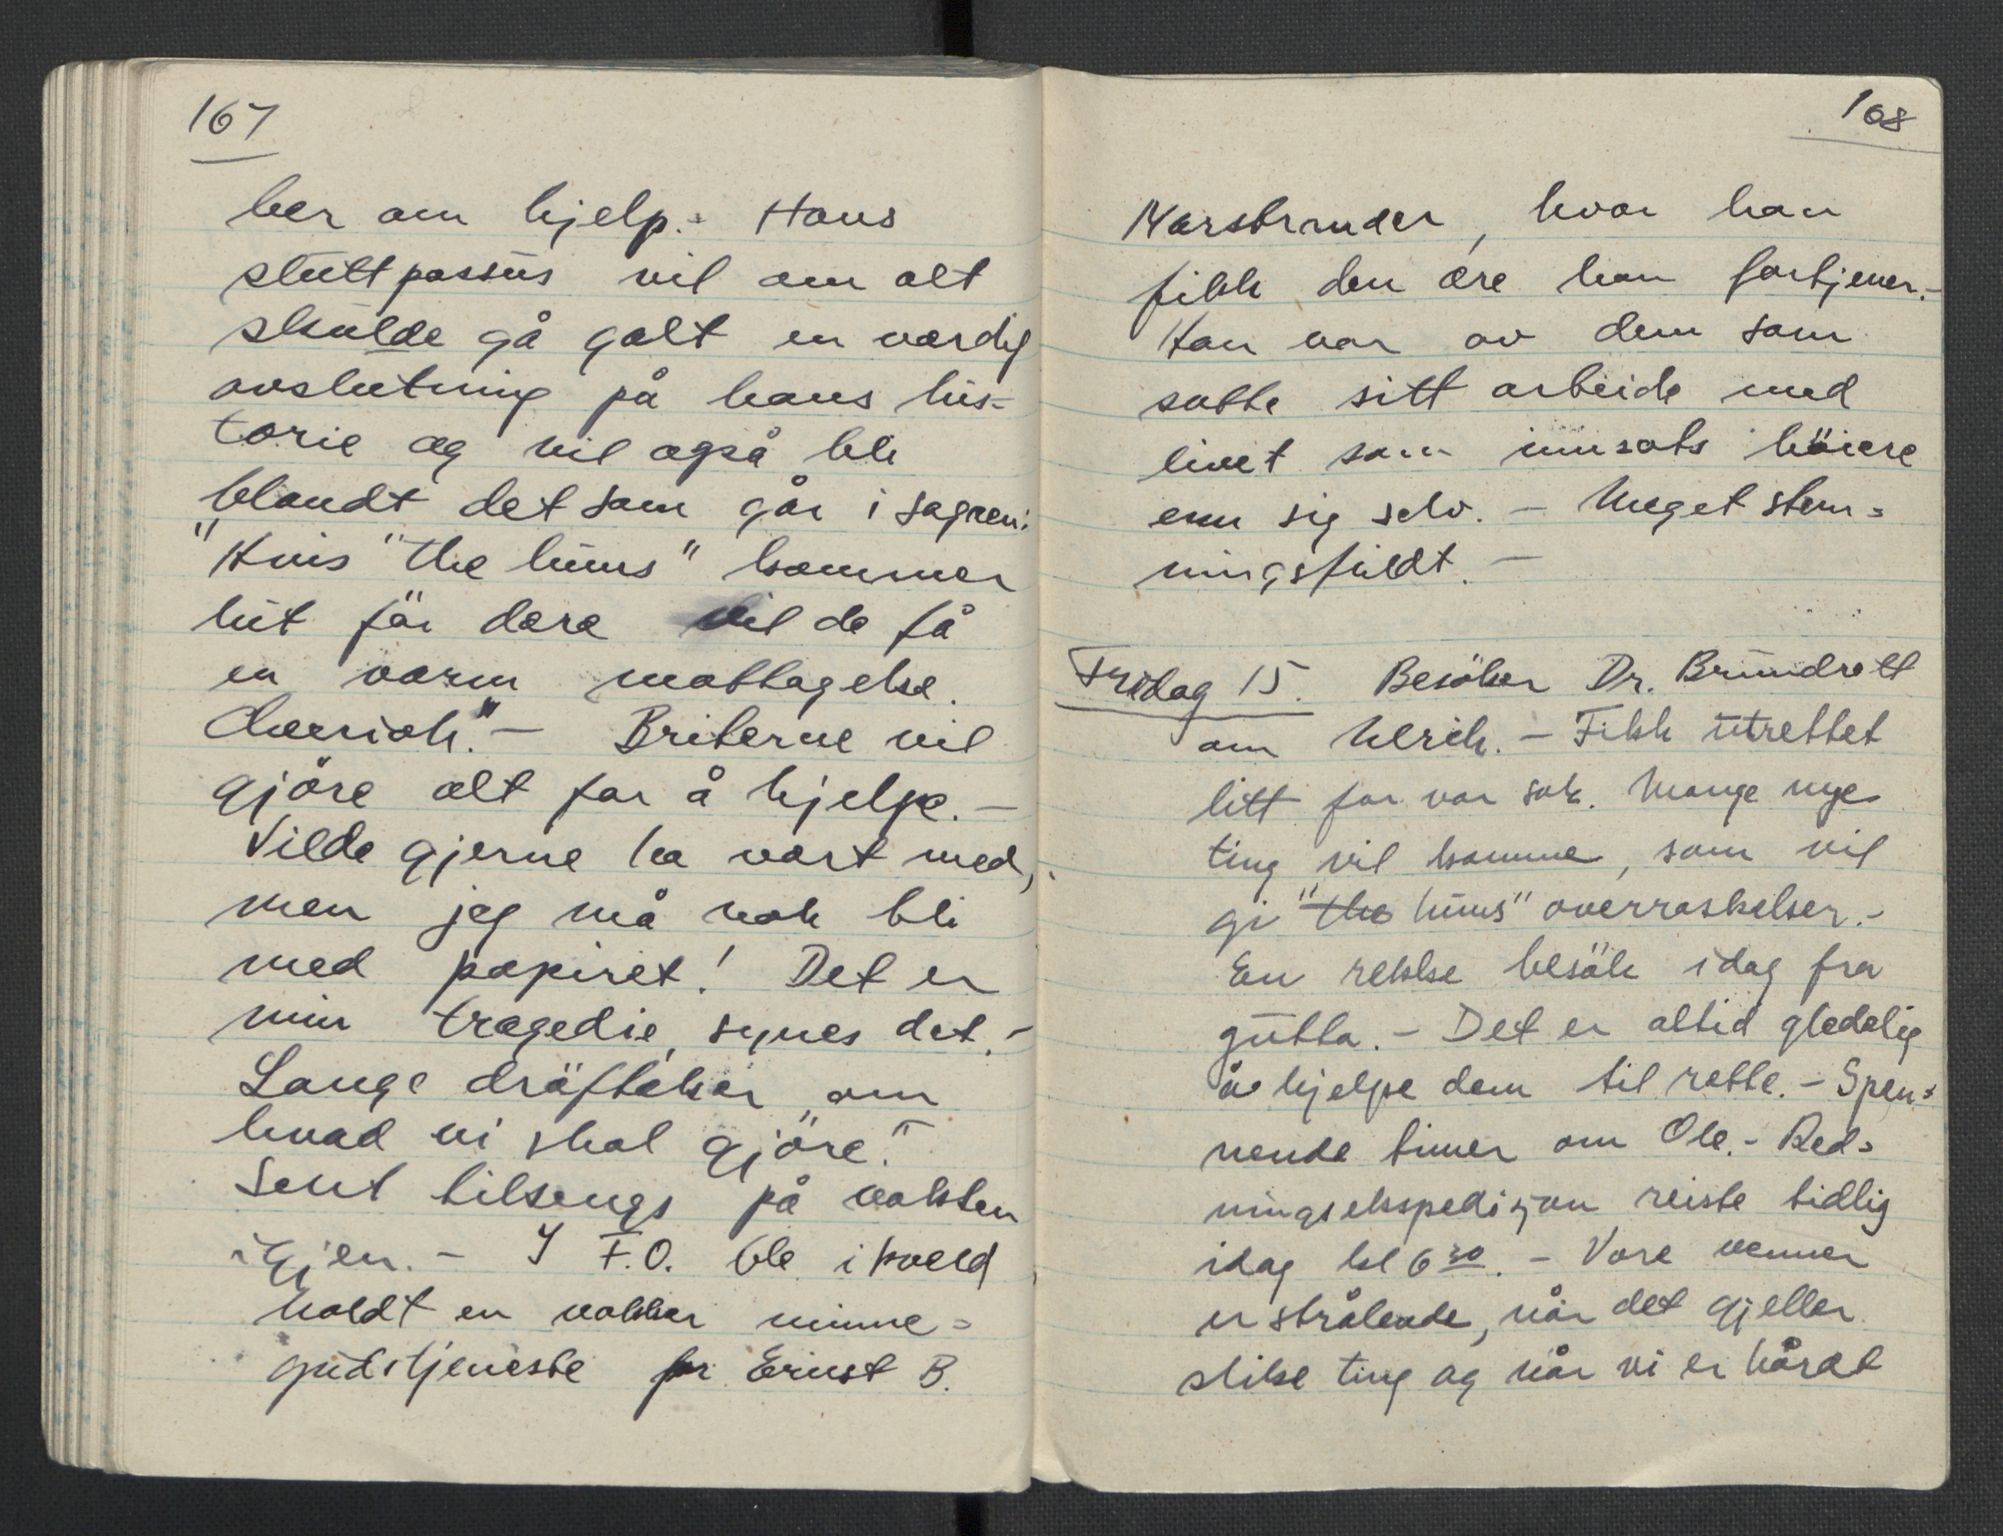 167
ber om hjelp.- Hans
sluttpassus vil om alt
skulde gå galt en værdig
avslutning på hans his-
torie og vil også bli
blandt det som går i sagnen:
"Hvis "the huns" kommer
hit för dere vil de få
en varm mottagelse.
Cheerioh." - Briterne vil
gjöre alt for å hjelpe. -
Vilde gjerne ha vært med,
men jeg må nok bli
med papiret! Det er
min tragedie, synes det. -
Lange dröftelser om
hvad vi skal gjöre." -
Sent tilsengs på vakten
igjen. - I F.O. ble ikveld
holdt en vakker minne-
gudstjeneste for Ernst B.
168
Marstrander, hvor han
fikk den ære han fortjener. -
Han var av dem som
satte sitt arbeide med
livet som innsats höiere
enn sig selv. - Meget stem-
ningsfuldt. -
Fredag 15. Besöker Dr. Brundrett
om Ulrik. - Fikk utrettet
litt for vor sak. Mange nye
ting vil komme, som vil
gi "the huns" overraskelser. -
En rekke besök idag fra
gutta. - Det er altid gledelig
å hjelpe dem til rette. - Spen-
nende timer om Ole. - Red-
ningsekspedisjon reiste tidlig
idag kl 6 30. - Vore venner
er strålende, når det gjeller
slike ting og når vi er hårdt